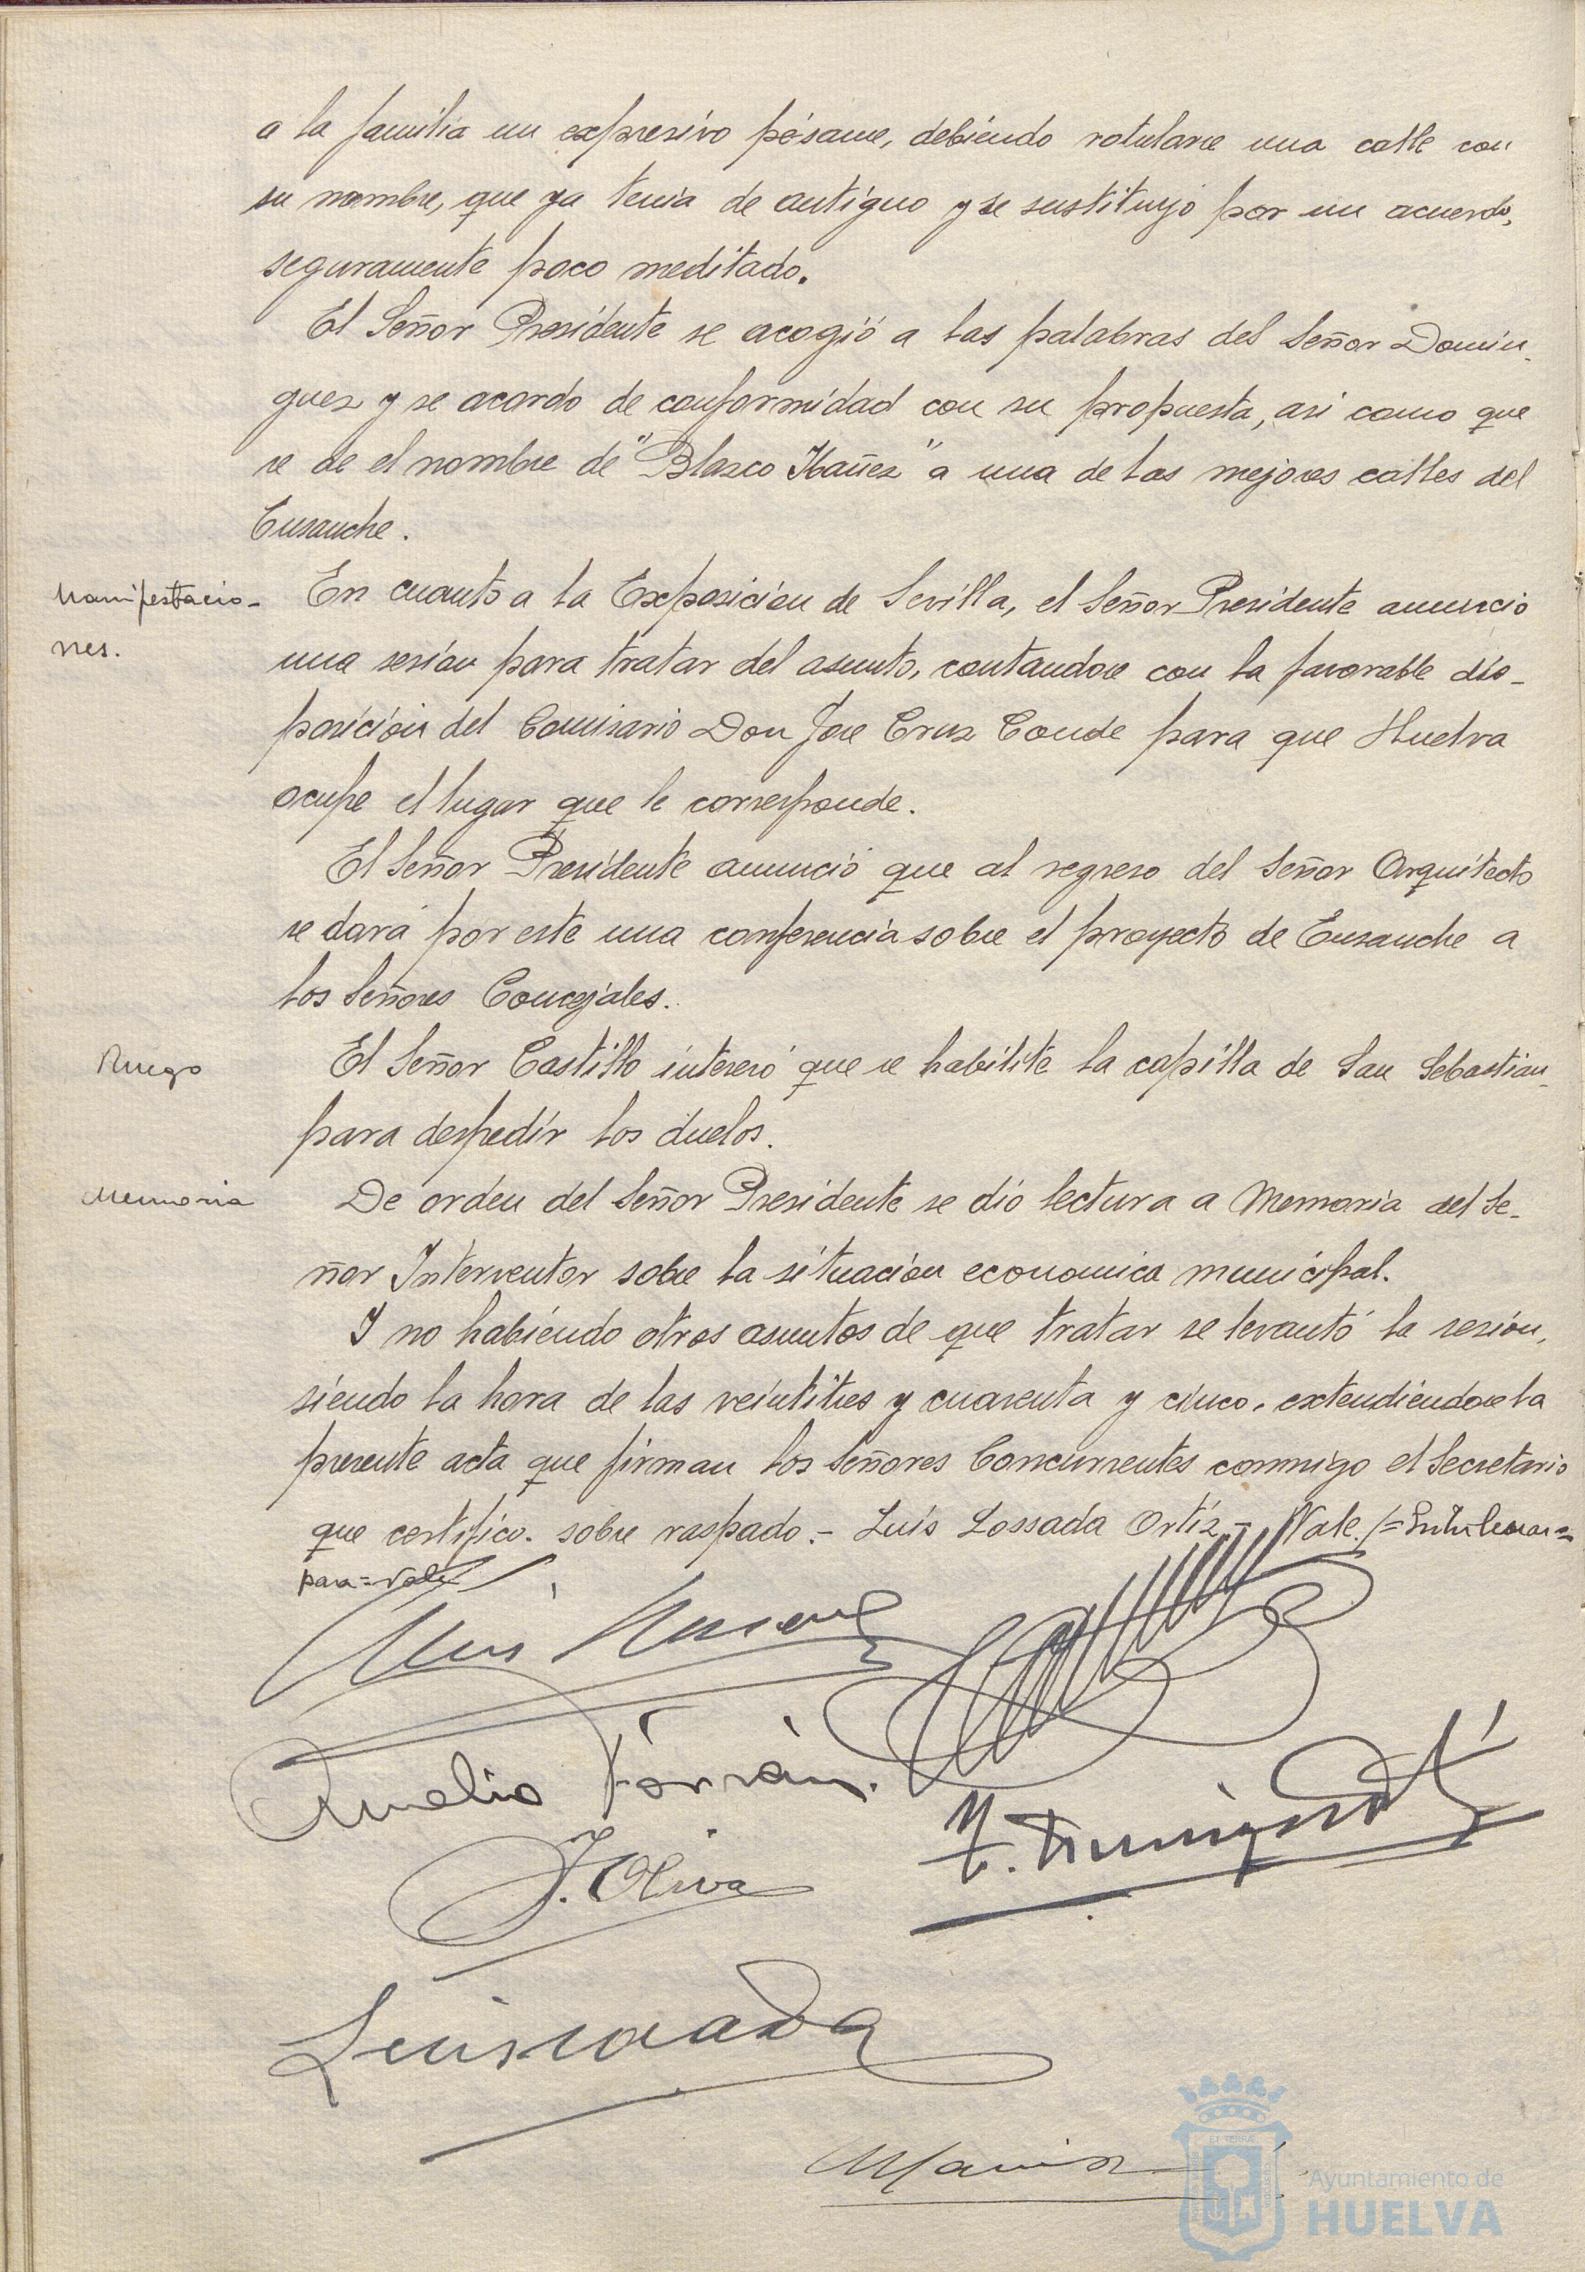 a la familia un expresivo pésame, debiendo rotularse una calle con
su nombre, que ya tenia de antiguo y se sustituyó por un acuerdo,
seguramente poco meditado.
El Señor Presidente se acogió a las palabras del Señor Domin-
guez y se acordo de conformidad con su propuesta, asi como que
se de el nombre de "Blasco Ibañez" a una de las mejores calles del
Ensanche.
Manifestacio-
nes.
En cuanto a la Exposición de Sevilla, el Señor Presidente anunció
una sesión para tratar del asunto, contandose con la favorable dis-
posición del Comisario Don Jose Cruz Conde para que Huelva
ocupe el lugar que le corresponde.
El Señor Presidente anunció que al regreso del Señor Arquitecto
se dará por este una conferencia sobre el proyecto de Ensanche a
los Señores Concejales.
Ruego
El Señor Castillo interesó que se habilite la capilla de San Sebastian
para despedir los duelos.
Memoria
De orden del Señor Presidente se dió lectura a Memoria del Se-
ñor Interventor sobre la situación economica municipal.
Y no habiendo otros asuntos de que tratar se levantó la sesión,
siendo la hora de las veintitres y cuarenta y cinco, extendiendose la
presente acta que firman los Señores Concurrentes conmigo el Secretario
que certifico. sobre raspado.- Luis Lossada Ortiz - Vale./=
para=Vale
Aurelio
J. Oliva
HUELVA
Ayuntamiento de